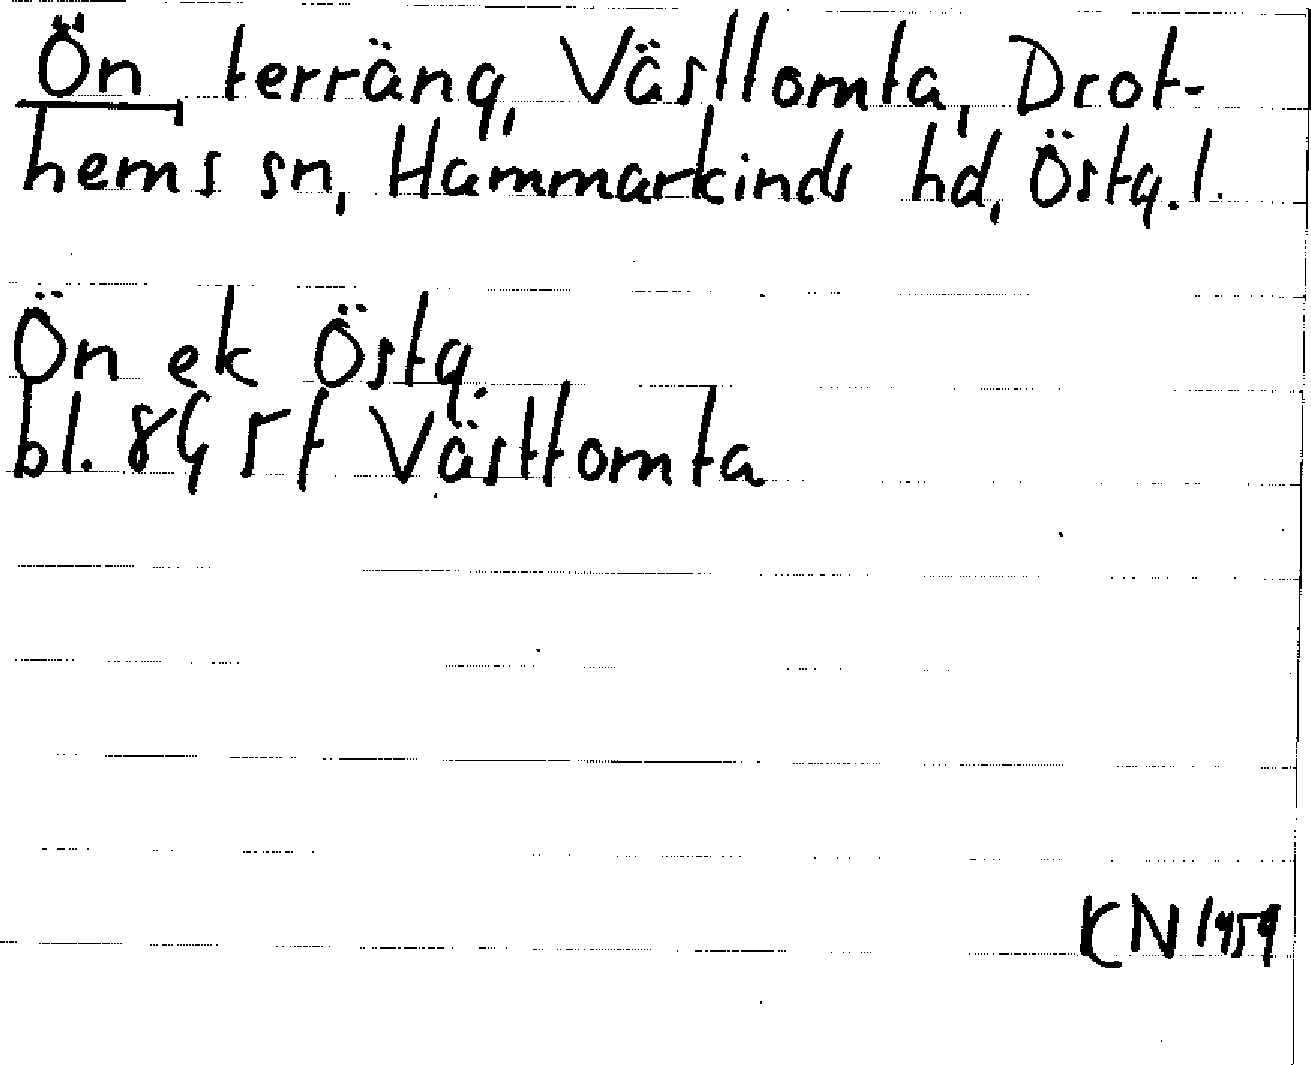 Ön terräng, Västtomta, Drot-
hems sn, Hammarkinds hd, Östg. l.
Ön ek Östg.
bl. 8G 5f Västtomta
KN 1959